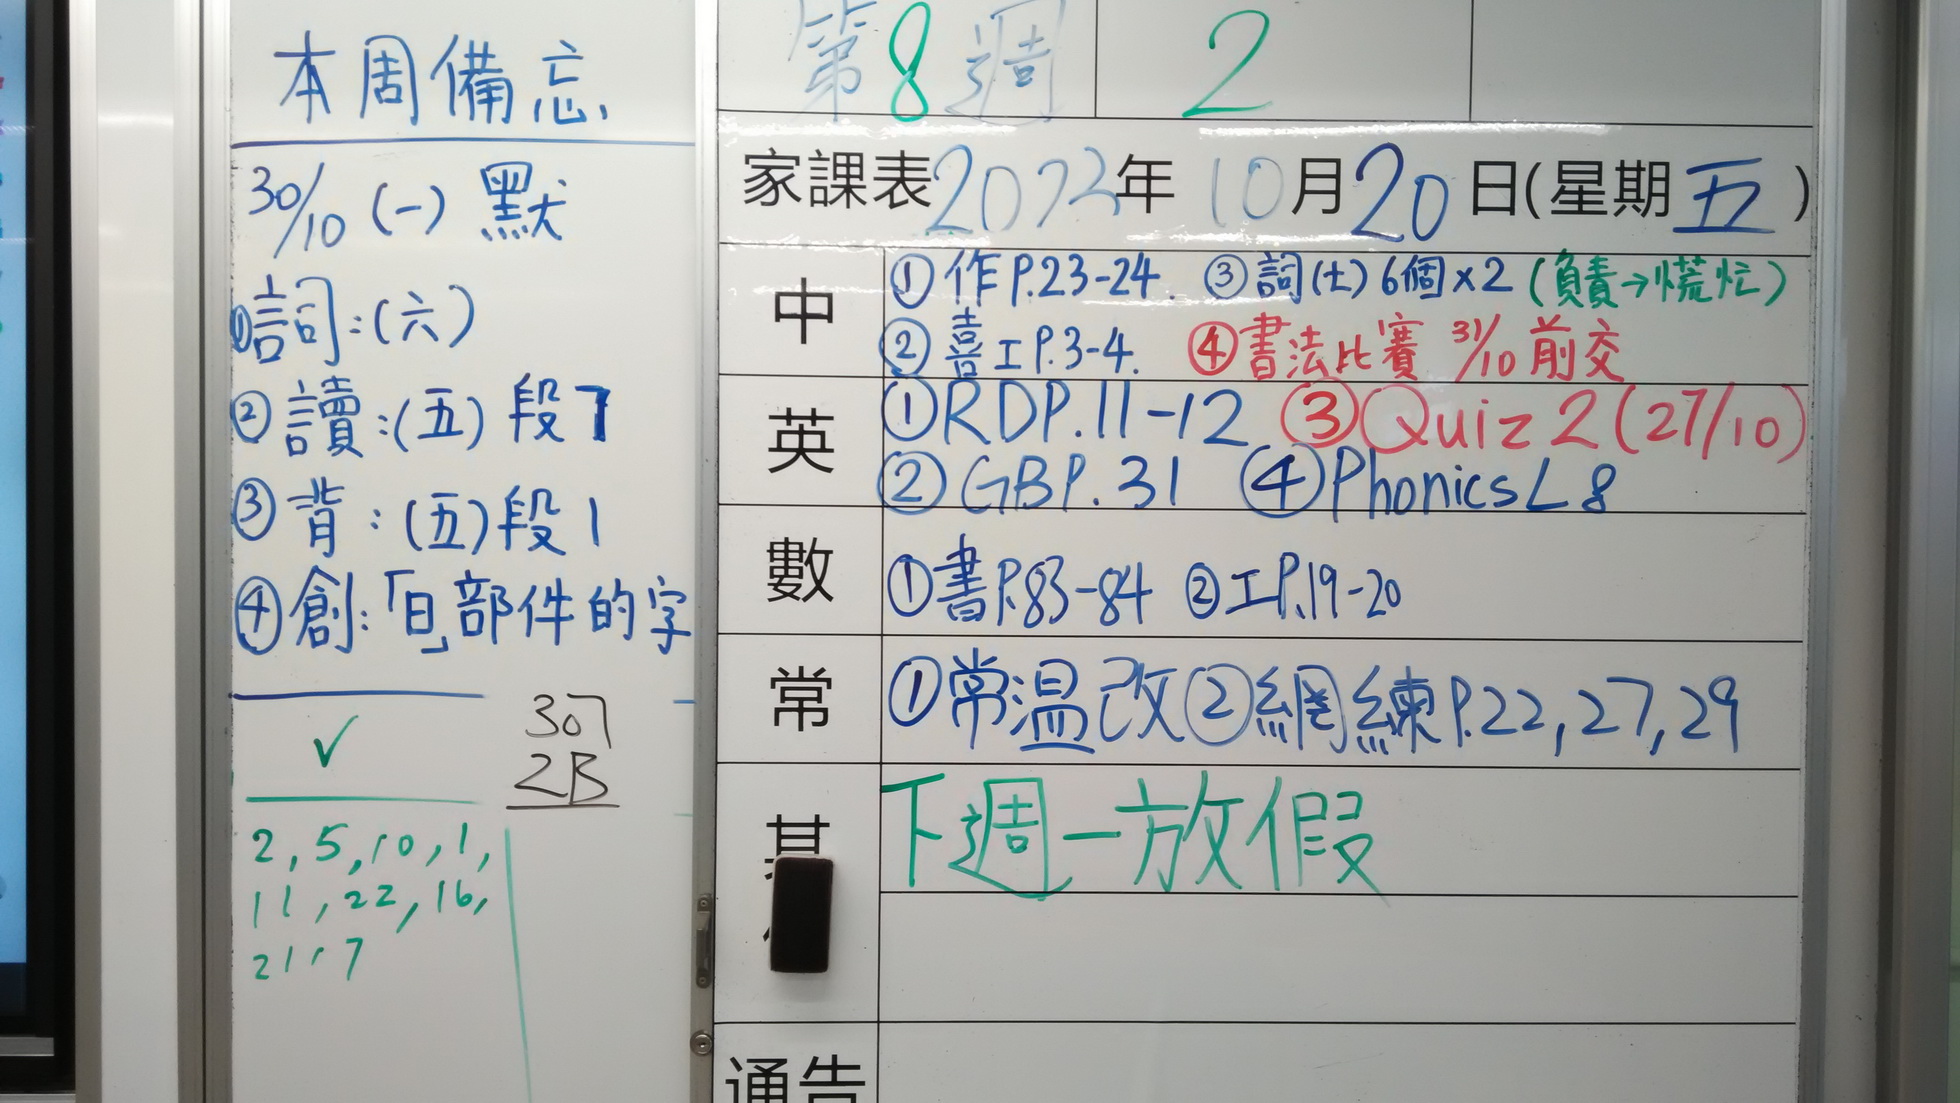 本周備忘
30/10 (一) 默
①詞:(六)
②讀:(五) 段7
③背:(五)段1
④創:「日」部件的字
✓
307
2B
2, 5, 10, 1,
11, 22, 16,
21, 7
第8週 2
家課表2023年10月20日(星期五)
中
①作P.23-24. ③詞(七)6個×2(負責→慌忙)
②喜工P.3-4. ④書法比賽 31/10 前交
英
①RDP.11-12 ③Quiz 2 (27/10)
②GBP.31 ④Phonics L8
數
①書P.83-84 ②工P.19-20
常
①常温改②網練P.22,27,29
下週一放假
通告